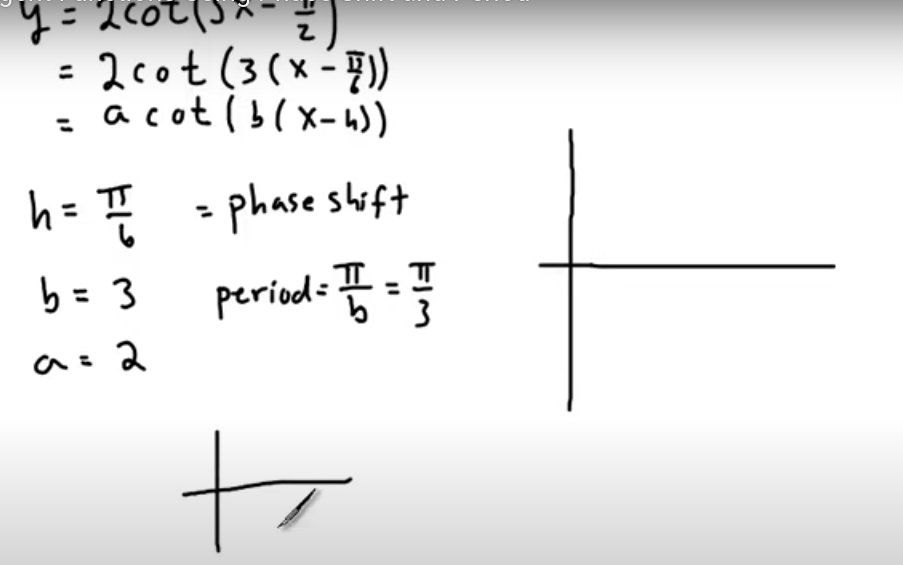 y = 2cot(3x - π/2)
= 2cot(3(x - π/6))
= a cot(b(x-h))
h = π/6 = phase shift
b = 3 period = π/b = π/3
a = 2